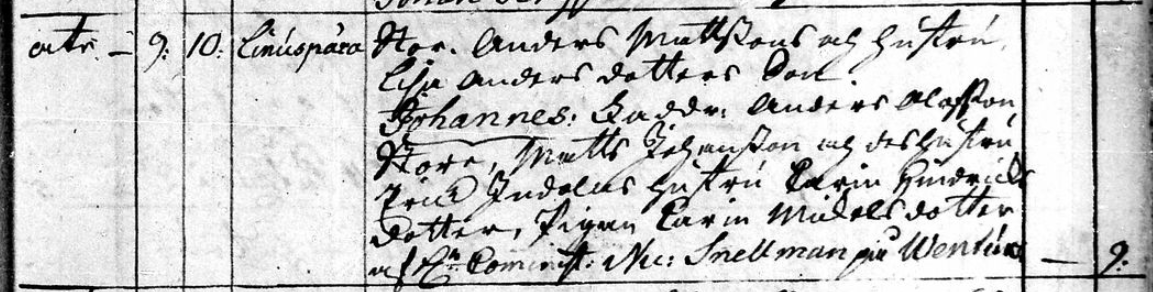 9. 10. Linuspära Stor. Anders Mattssons och hustru
Lisa Anders dotters Son
Johannes: Faddr: Anders Olofsson
Store, Matts Johansson och des hustru
Erick hustru Carin Hindrichs
dotter, Pigan Carin Mickels dotter
af Comminist: Nic: Snellman — 9.